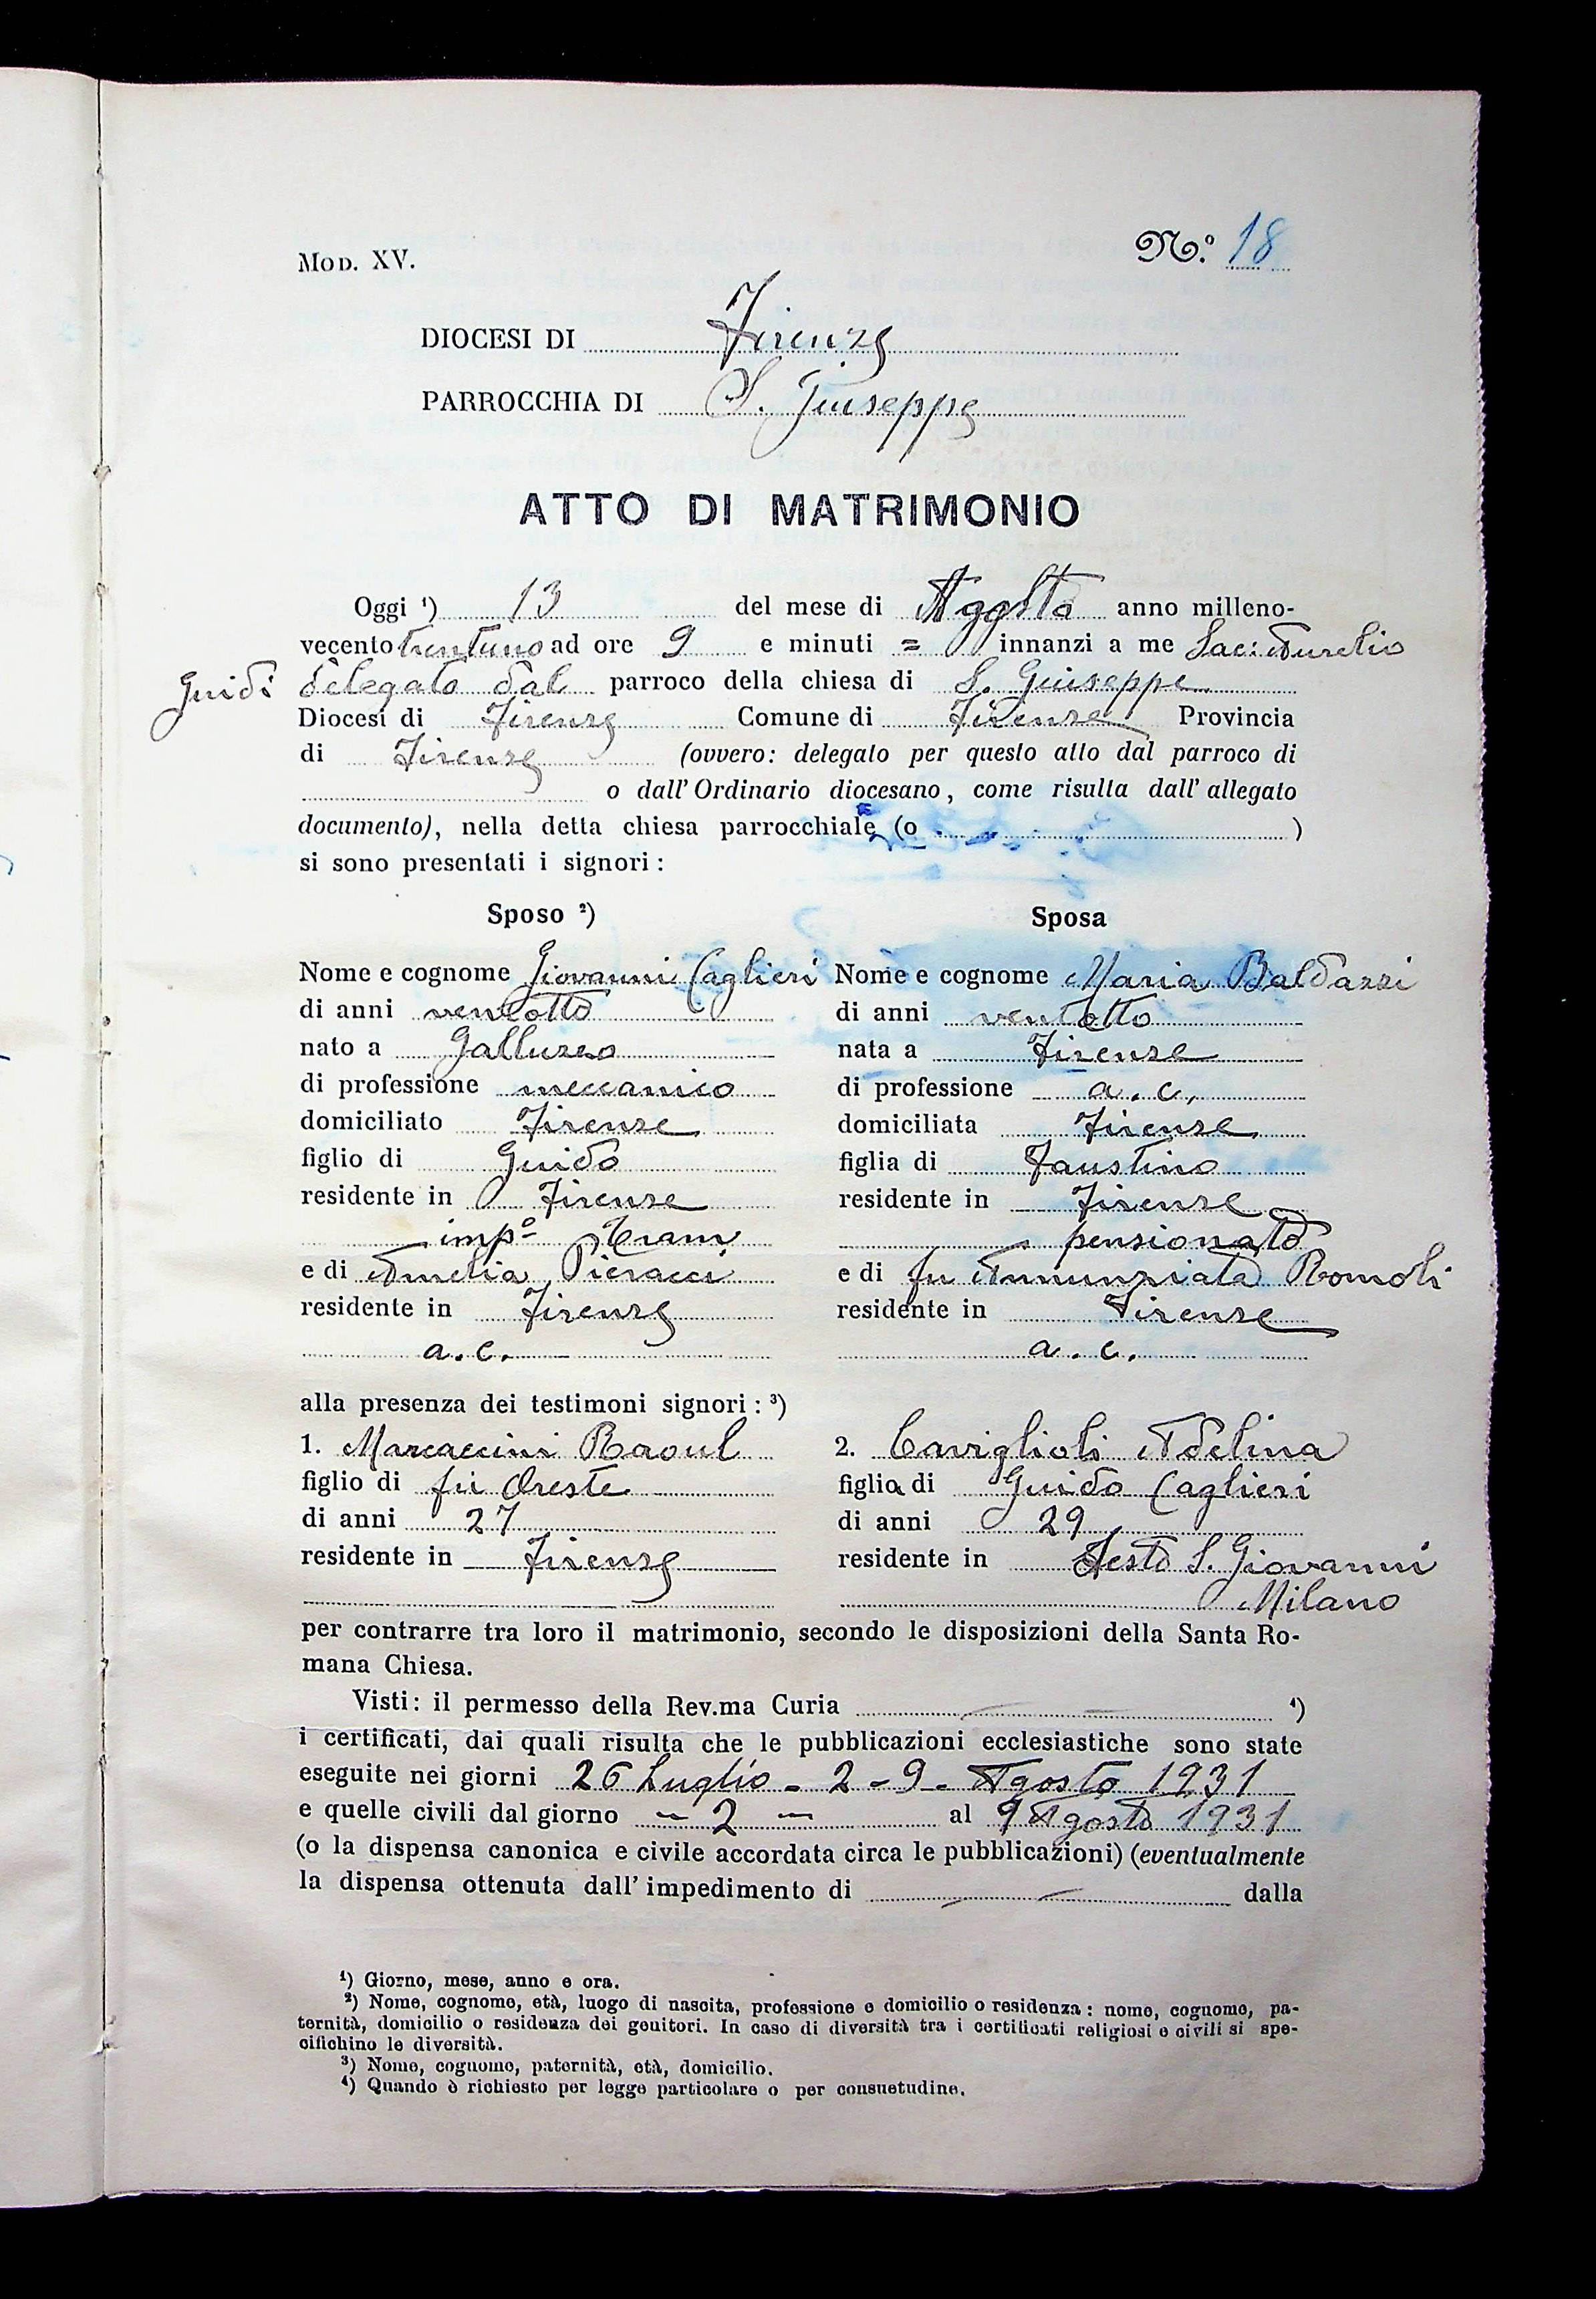 Mod. XV.
N.º 18
DIOCESI DI Firenze
PARROCCHIA DI S. Giuseppe
ATTO DI MATRIMONIO
Oggi ¹) 13 del mese di Agosto anno milleno-
vecento trentuno ad ore 9 e minuti = innanzi a me Sac: Aurelio
Guidi delegato dal parroco della chiesa di S. Giuseppe
Diocesi di Firenze Comune di Firenze Provincia
di Firenze (ovvero: delegato per questo atto dal parroco di
o dall'Ordinario diocesano, come risulta dall'allegato
documento), nella detta chiesa parrocchiale (o )
si sono presentati i signori:
Sposo ²)
Nome e cognome Giovanni Caglieri
di anni ventotto
nato a Galluzzo
di professione meccanico
domiciliato Firenze
figlio di Guido
residente in Firenze
impº Tram
e di Amelia Pieracci
residente in Firenze
a.c.
Sposa
Nome e cognome Maria Baldazzi
di anni ventotto
nata a Firenze
di professione a.c.
domiciliata Firenze
figlia di Faustino
residente in Firenze
pensionato
e di fu Annunziata Romoli
residente in Firenze
a.c.
alla presenza dei testimoni signori: ³)
1. Marcaccini Raoul
figlio di fu Oreste
di anni 27
residente in Firenze
2. Caviglioli Adelina
figlia di Guido Caglieri
di anni 29
residente in Sesto S. Giovanni
Milano
per contrarre tra loro il matrimonio, secondo le disposizioni della Santa Ro-
mana Chiesa.
Visti: il permesso della Rev.ma Curia — ⁴)
i certificati, dai quali risulta che le pubblicazioni ecclesiastiche sono state
eseguite nei giorni 26 Luglio - 2 - 9 - Agosto 1931
e quelle civili dal giorno - 2 - al 9 Agosto 1931
(o la dispensa canonica e civile accordata circa le pubblicazioni) (eventualmente
la dispensa ottenuta dall'impedimento di — dalla
¹) Giorno, mese, anno e ora.
²) Nome, cognome, età, luogo di nascita, professione e domicilio o residenza: nome, cognome, pa-
ternità, domicilio o residenza dei genitori. In caso di diversità tra i certificati religiosi e civili si spe-
cifichino le diversità.
³) Nome, cognome, paternità, età, domicilio.
⁴) Quando è richiesto per legge particolare o per consuetudine.